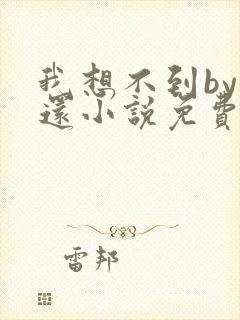 我想不到by
還小說免費
雷邦